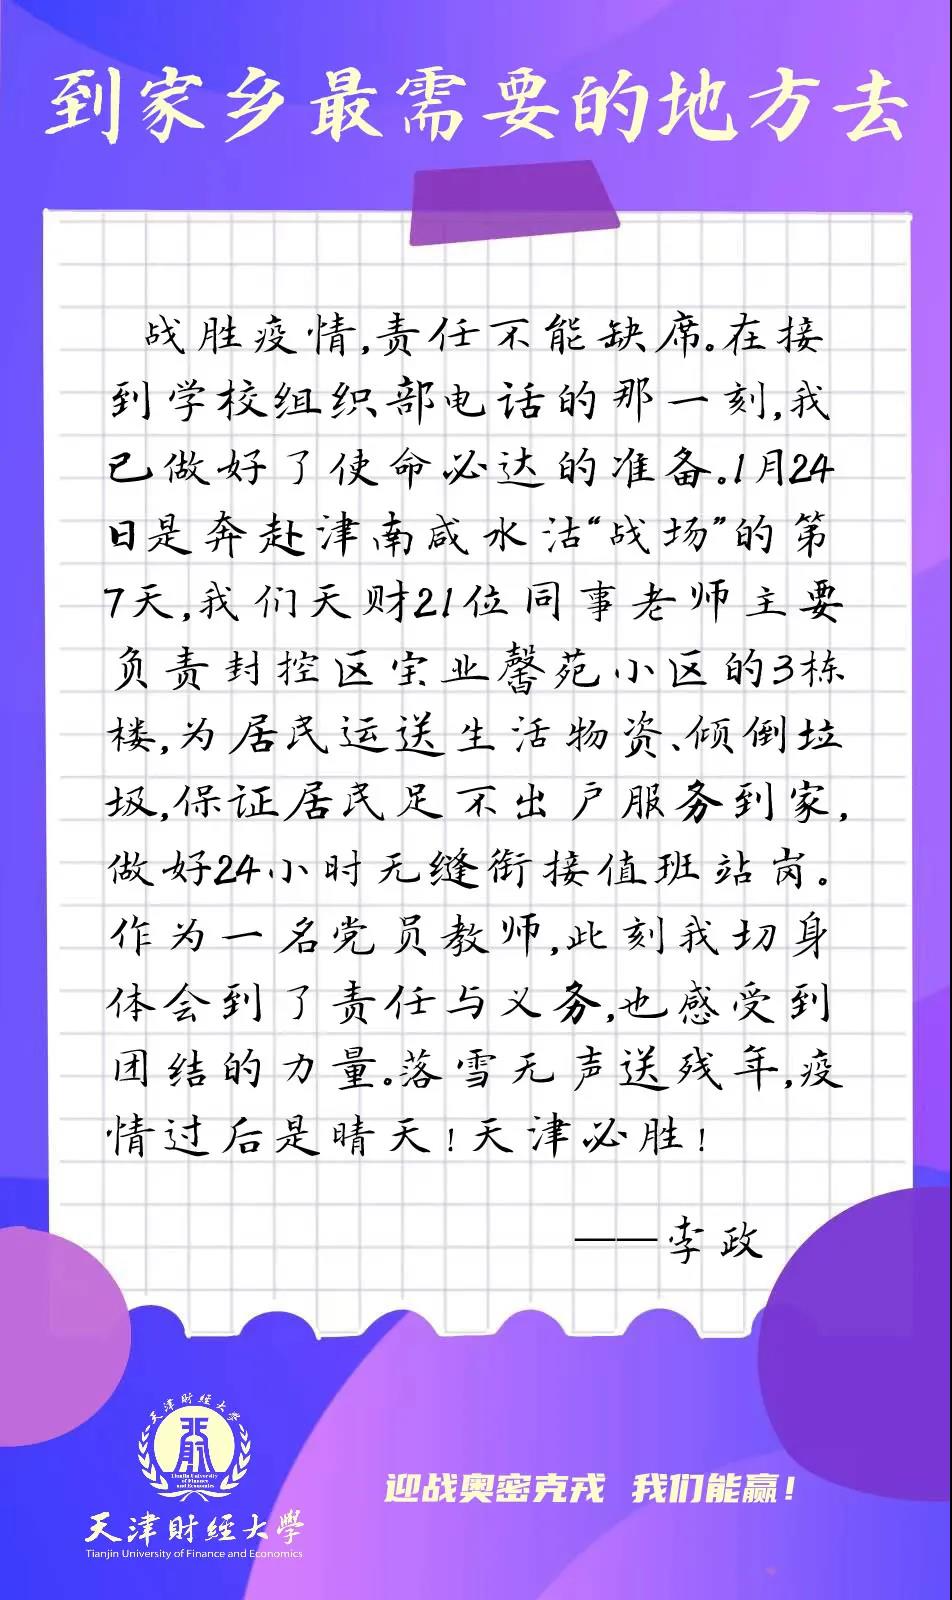 到家乡最需要的地方去
战胜疫情,责任不能缺席。在接
到学校组织部电话的那一刻,我
已做好了使命必达的准备。1月24
日是奔赴津南咸水沽“战场”的第
7天,我们天财21位同事老师主要
负责封控区宝业馨苑小区的3栋
楼,为居民运送生活物资、倾倒垃
圾,保证居民足不出户服务到家,
做好24小时无缝衔接值班站岗。
作为一名党员教师,此刻我切身
体会到了责任与义务,也感受到
团结的力量。落雪无声送残年,疫
情过后是晴天!天津必胜!
——李政
天津财经大学
Tianjin University
of Finance
and Economics
天津财经大学
Tianjin University of Finance and Economics
迎战奥密克戎 我们能赢!